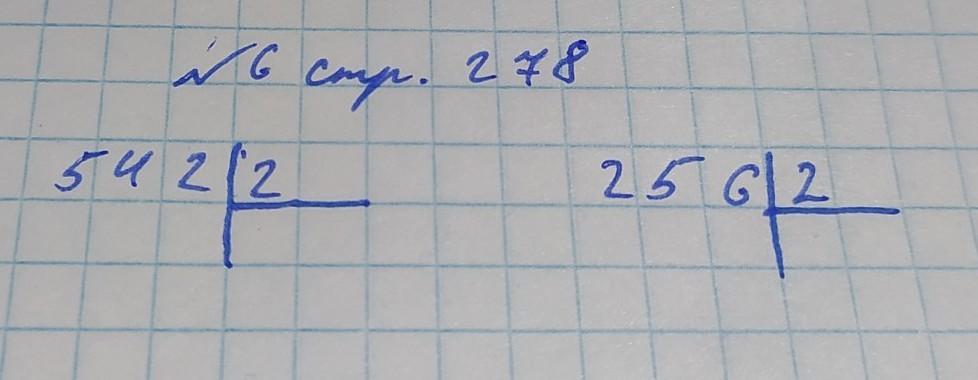 №6 стр. 278
542|2 256|2